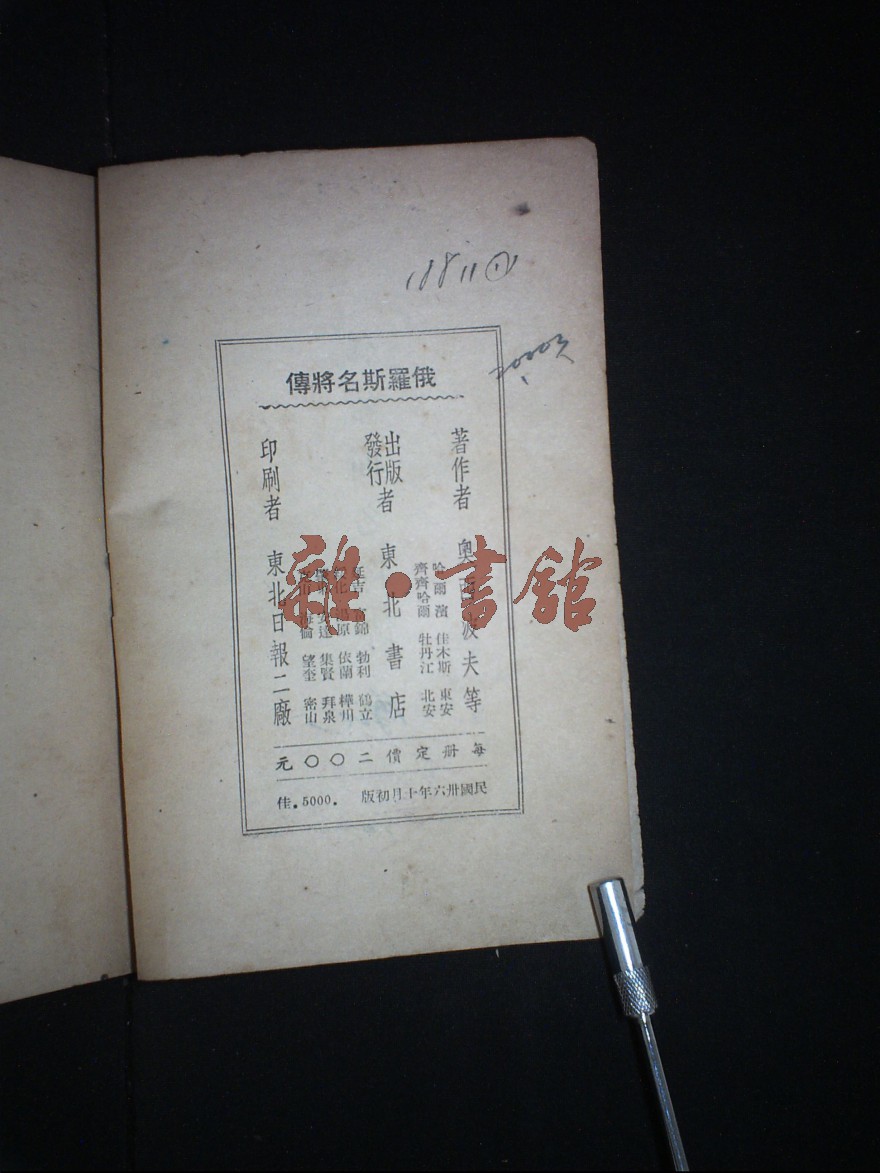 俄羅斯名將傳
著作者 奧西波夫等
出版者
發行
東北書店
哈爾濱 佳木斯 東安
齊齊哈爾 牡丹江 北安
延吉 富錦 勃利 鶴立
依蘭 樺川
集賢 拜泉
望奎 密山
印刷者 東北日報二廠
每册定價二〇〇元
民國卅六年十月初版 佳.5000.
雜·書館